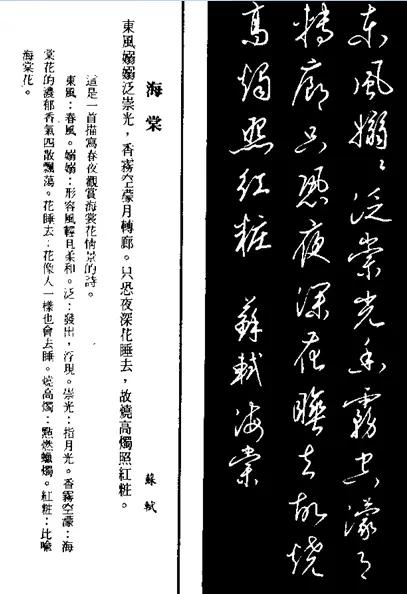 東風嫋〻泛崇光香霧空濛月
轉廊只恐夜深花睡去故燒
高燭照红粧 蘇軾海棠
海棠 蘇軾
東風嫋嫋泛崇光，香霧空濛月轉廊。只恐夜深花睡去，故燒高燭照紅粧。
這是一首描寫春夜觀賞海棠花情景的詩。
東風：春風。嫋嫋：形容風輕且柔和。泛：發出，浮現。崇光：指月光。香霧空濛：海
棠花的濃郁香氣四散飄蕩。花睡去：花像人一樣也會去睡。燒高燭：點燃蠟燭。紅粧：比喻
海棠花。